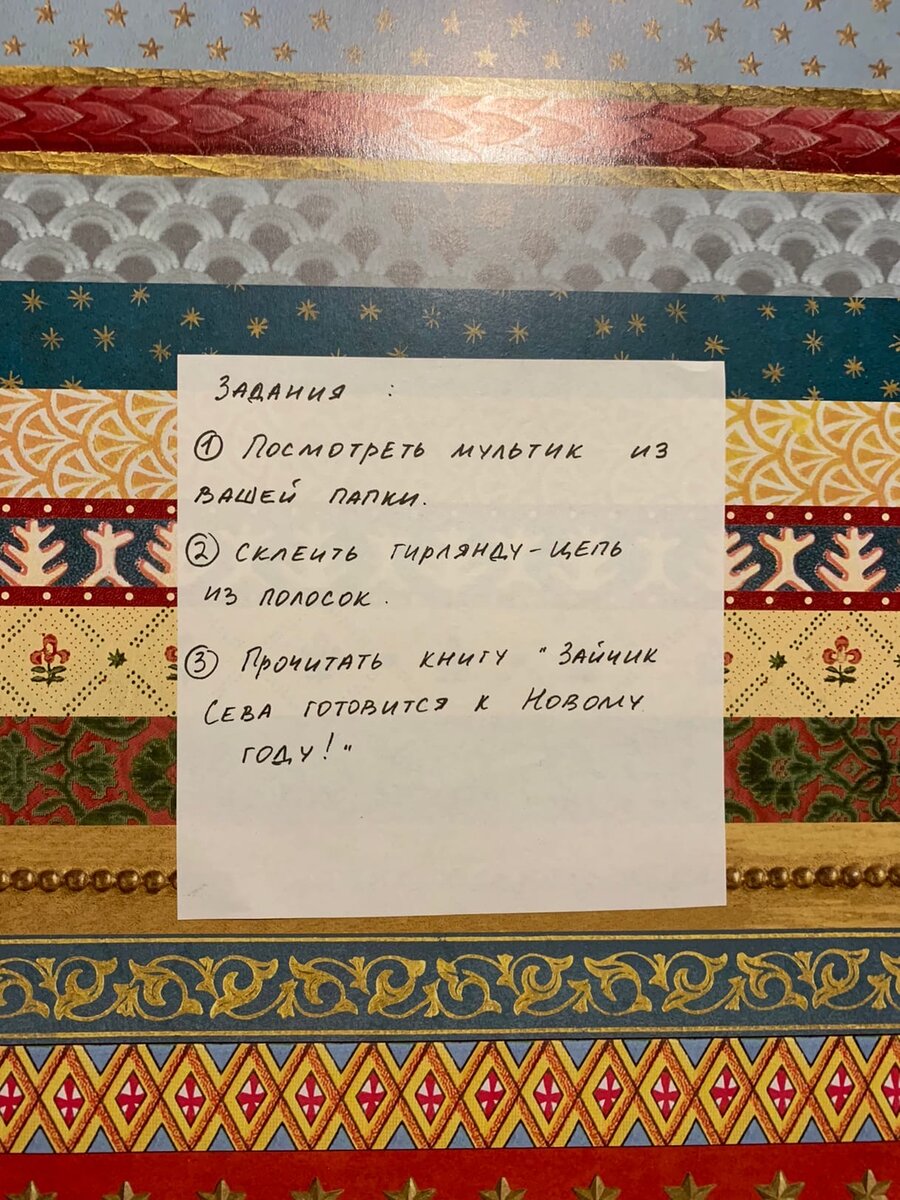 Задания :
① Посмотреть мультик из
вашей папки.
② Склеить гирлянду-цепь
из полосок.
③ Прочитать книгу "Зайчик
Сева готовится к Новому
году!"